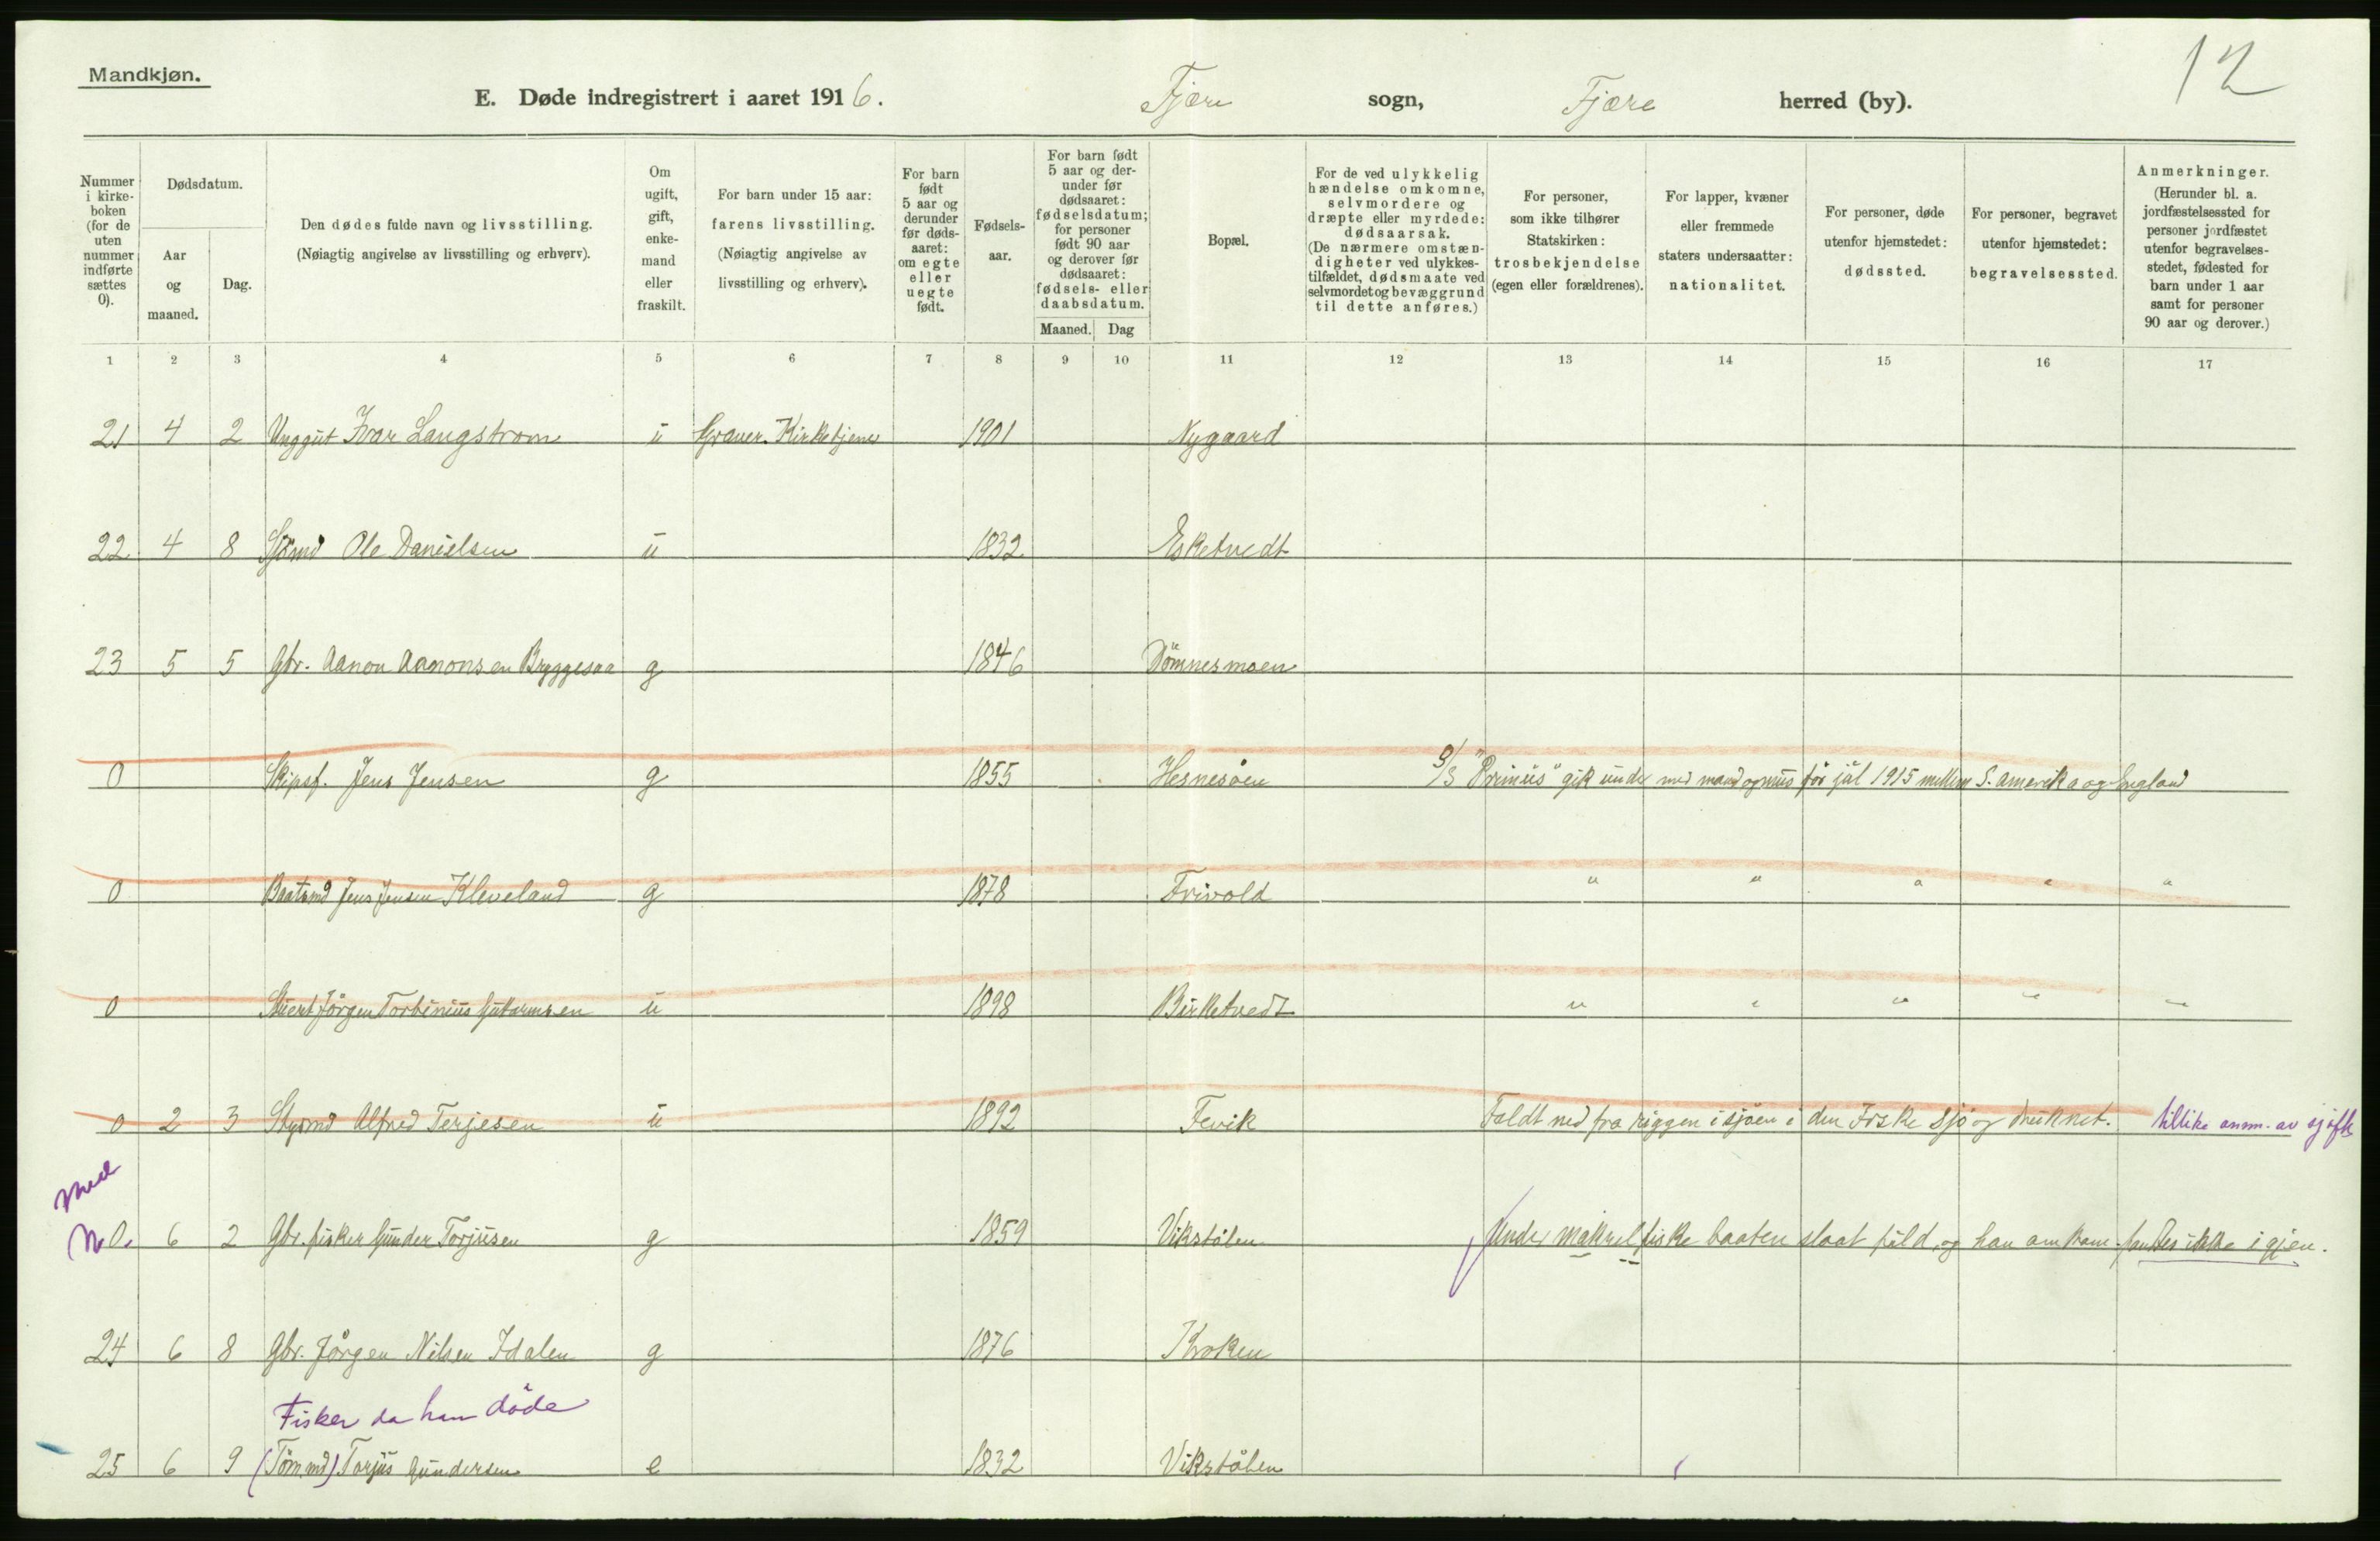 Mandkjøn.
12
E. Døde indregistrert i aaret 1916. Fjære sogn, Fjære herred (by).
Nummer i kirke-boken (for de uten nummer indførte sættes 0).
Dødsdatum.
Aar og maaned.
Dag.
Den dødes fulde navn og livsstilling. (Nøiagtig angivelse av livsstilling og erhverv).
Om ugift, gift, enke-mand eller fraskilt.
For barn under 15 aar: farens livsstilling. (Nøiagtig angivelse av livsstilling og erhverv).
For barn født 5 aar og derunder før døds-aaret: om egte eller uegte født.
Fødsels-aar.
For barn født 5 aar og der-under før dødsaaret: fødselsdatum; for personer født 90 aar og derover før dødsaaret: fødsels- eller daabsdatum.
Maaned. Dag
Bopæl.
For de ved ulykkelig hændelse omkomne, selvmordere og dræpte eller myrdede: dødsaarsak. (De nærmere omstæn-digheter ved ulykkes-tilfældet, dødsmaate ved selvmordet og bevæggrund til dette anføres.)
For personer, som ikke tilhører Statskirken: trosbekjendelse (egen eller forældrenes).
For lapper, kvæner eller fremmede staters undersaatter: nationalitet.
For personer, døde utenfor hjemstedet: dødssted.
For personer, begravet utenfor hjemstedet: begravelsessted.
Anmerkninger. (Herunder bl. a. jordfæstelsessted for personer jordfæstet utenfor begravelses-stedet, fødested for barn under 1 aar samt for personer 90 aar og derover.)
1 2 3 4 5 6 7 8 9 10 11 12 13 14 15 16 17
21 4 2 Unggut Ivar Langstrom u Graver. Kirketjener 1901 Nygaard
22 4 8 Sjömd Ole Danielsen u 1832 Esketvedt
23 5 5 Gbr. Aanon Aanonsen Bryggesaa g 1846 Dömnesmoen
0 Skipsf. Jens Jensen g 1855 Hesnesöen S/S "Primus" gik under med mand og mus för jul 1915 mellem S. Amerika og England
0 Baatsmd Jens Jensen Kleveland g 1878 Frivold " " " " "
0 Stuert Jörgen Torbinius u 1898 Birketvedt " " " " "
0 2 3 Styrmd Alfred Terjesen u 1892 Fevik Faldt ned fra riggen i sjöen i den Irske sjö og druknet. tillike anm. av sjöfk
med
N 0. 6 2 Gbr. fisker Gunder Torjusen g 1859 Vikstölen Under makrelfiske baaten slaat fuld, og han omkom - fandtes ikke igjen.
24 6 8 Gbr. Jörgen Nilsen Idalen g 1876 Kroken
Fisker da han döde
25 6 9 (Tömmd) Torjus Gundersen e 1832 Vikstölen